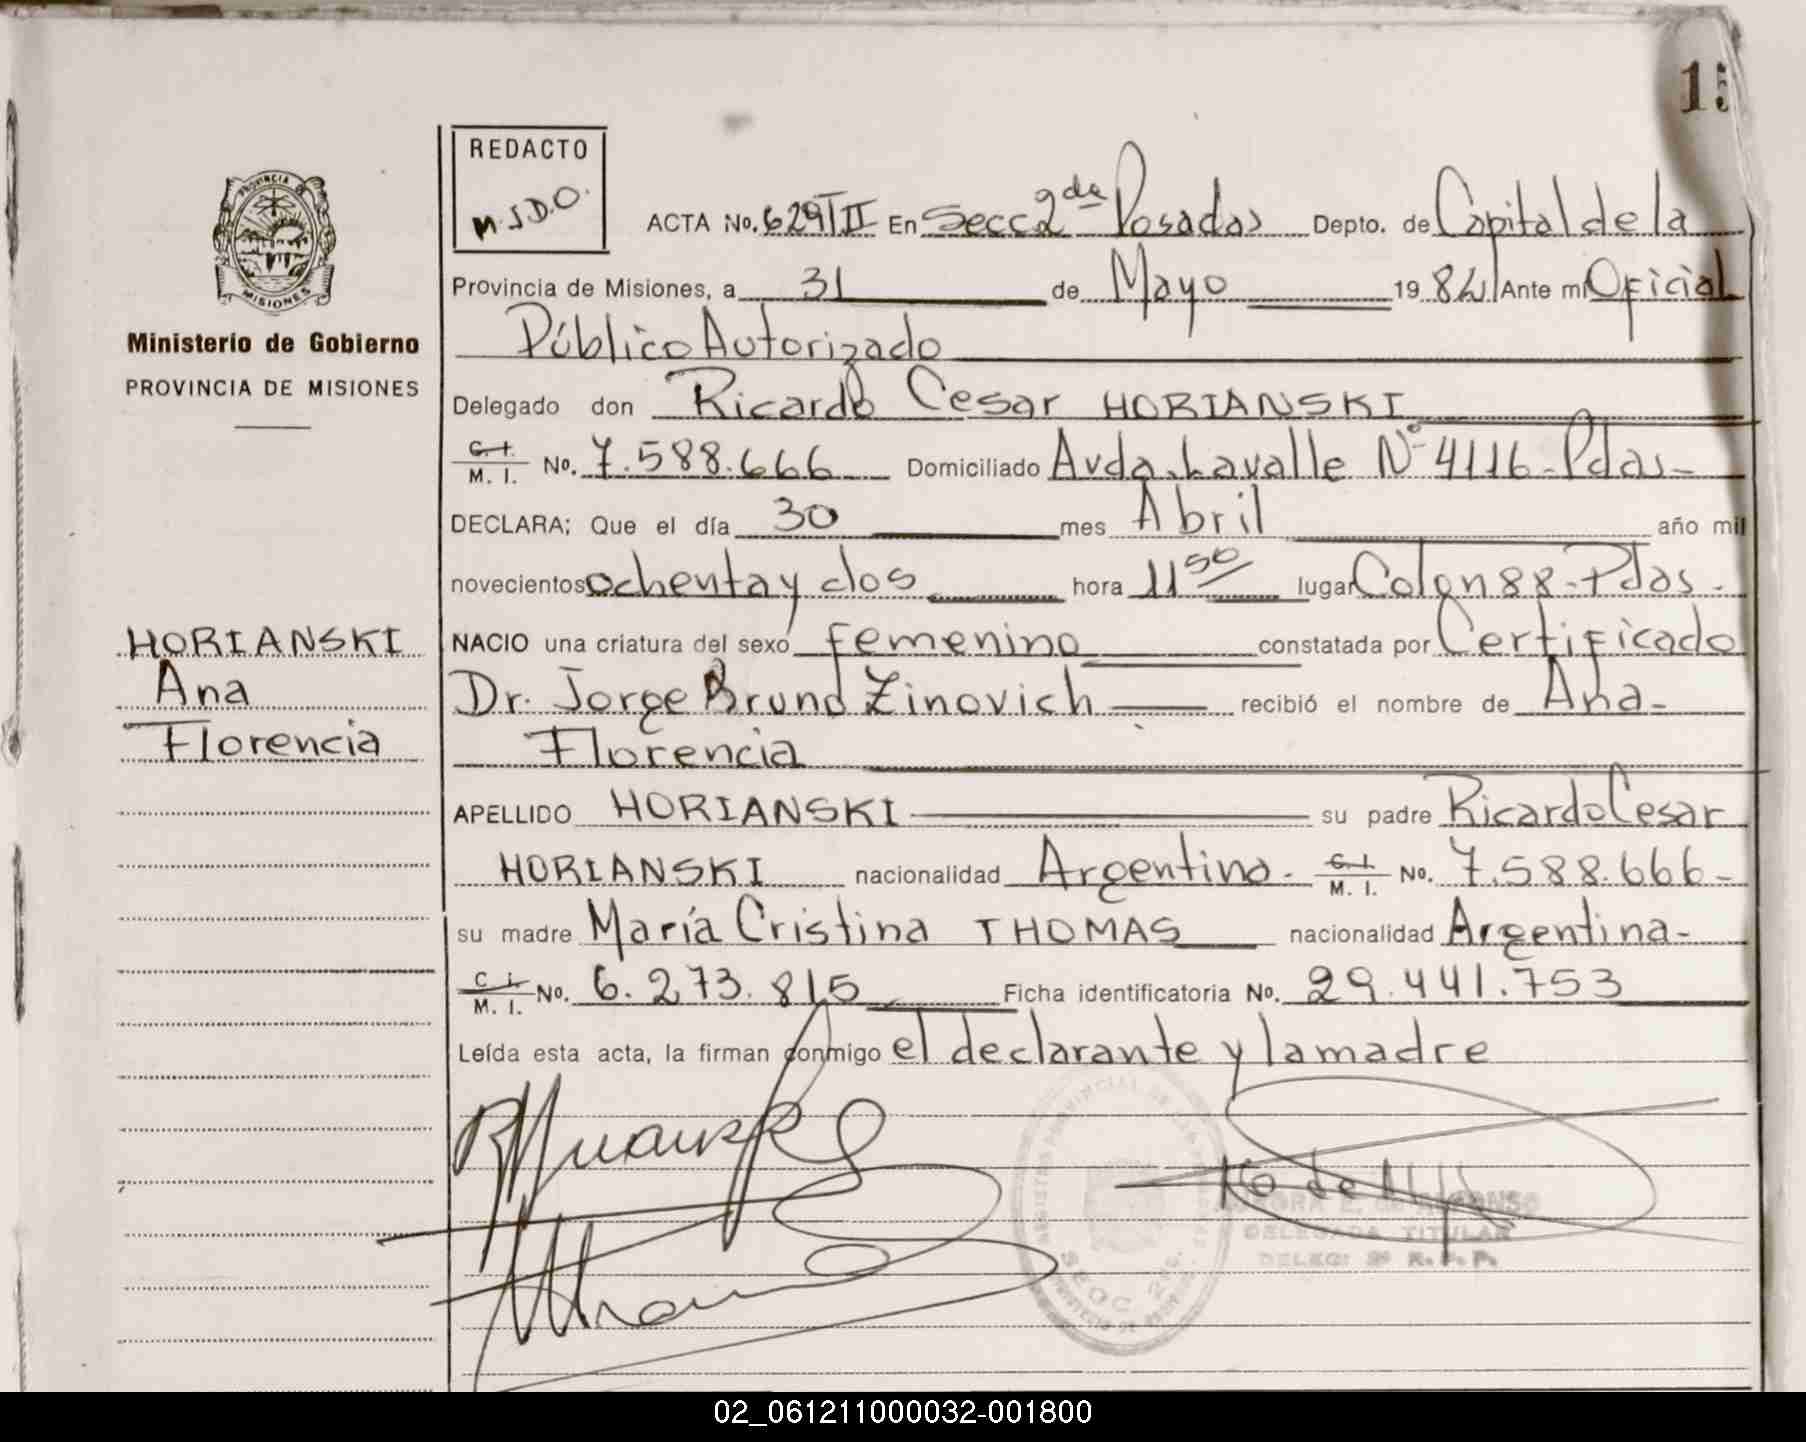 15
REDACTO
M.J.D.O.
ACTA No. 629TII En Secc 2da Posadas Depto. de Capital de la
Provincia de Misiones, a 31 de Mayo 1982 Ante mi Oficial
Público Autorizado
Delegado don Ricardo Cesar HORIANSKI
C. I. M. I. No. 7.588.666 Domiciliado Avda. Lavalle Nº 4116-Pdas-
DECLARA; Que el día 30 mes Abril año mil
novecientos ochenta y dos hora 11 50 lugar Colon 88-Pdas-
NACIO una criatura del sexo femenino constatada por Certificado
Dr. Jorge Bruno Zinovich recibió el nombre de Ana-
Florencia
APELLIDO HORIANSKI su padre Ricardo Cesar
HORIANSKI nacionalidad Argentino- C. I. M. I. No. 7.588.666-
su madre María Cristina THOMAS nacionalidad Argentina-
C. I. M. I. No. 6.273.815 Ficha identificatoria No. 29.441.753
Leída esta acta, la firman conmigo el declarante y la madre
PROVINCIA
MISIONES
Ministerio de Gobierno
PROVINCIA DE MISIONES
HORIANSKI
Ana
Florencia
SECC 2da.
DELEGADA TITULAR
02_061211000032-001800